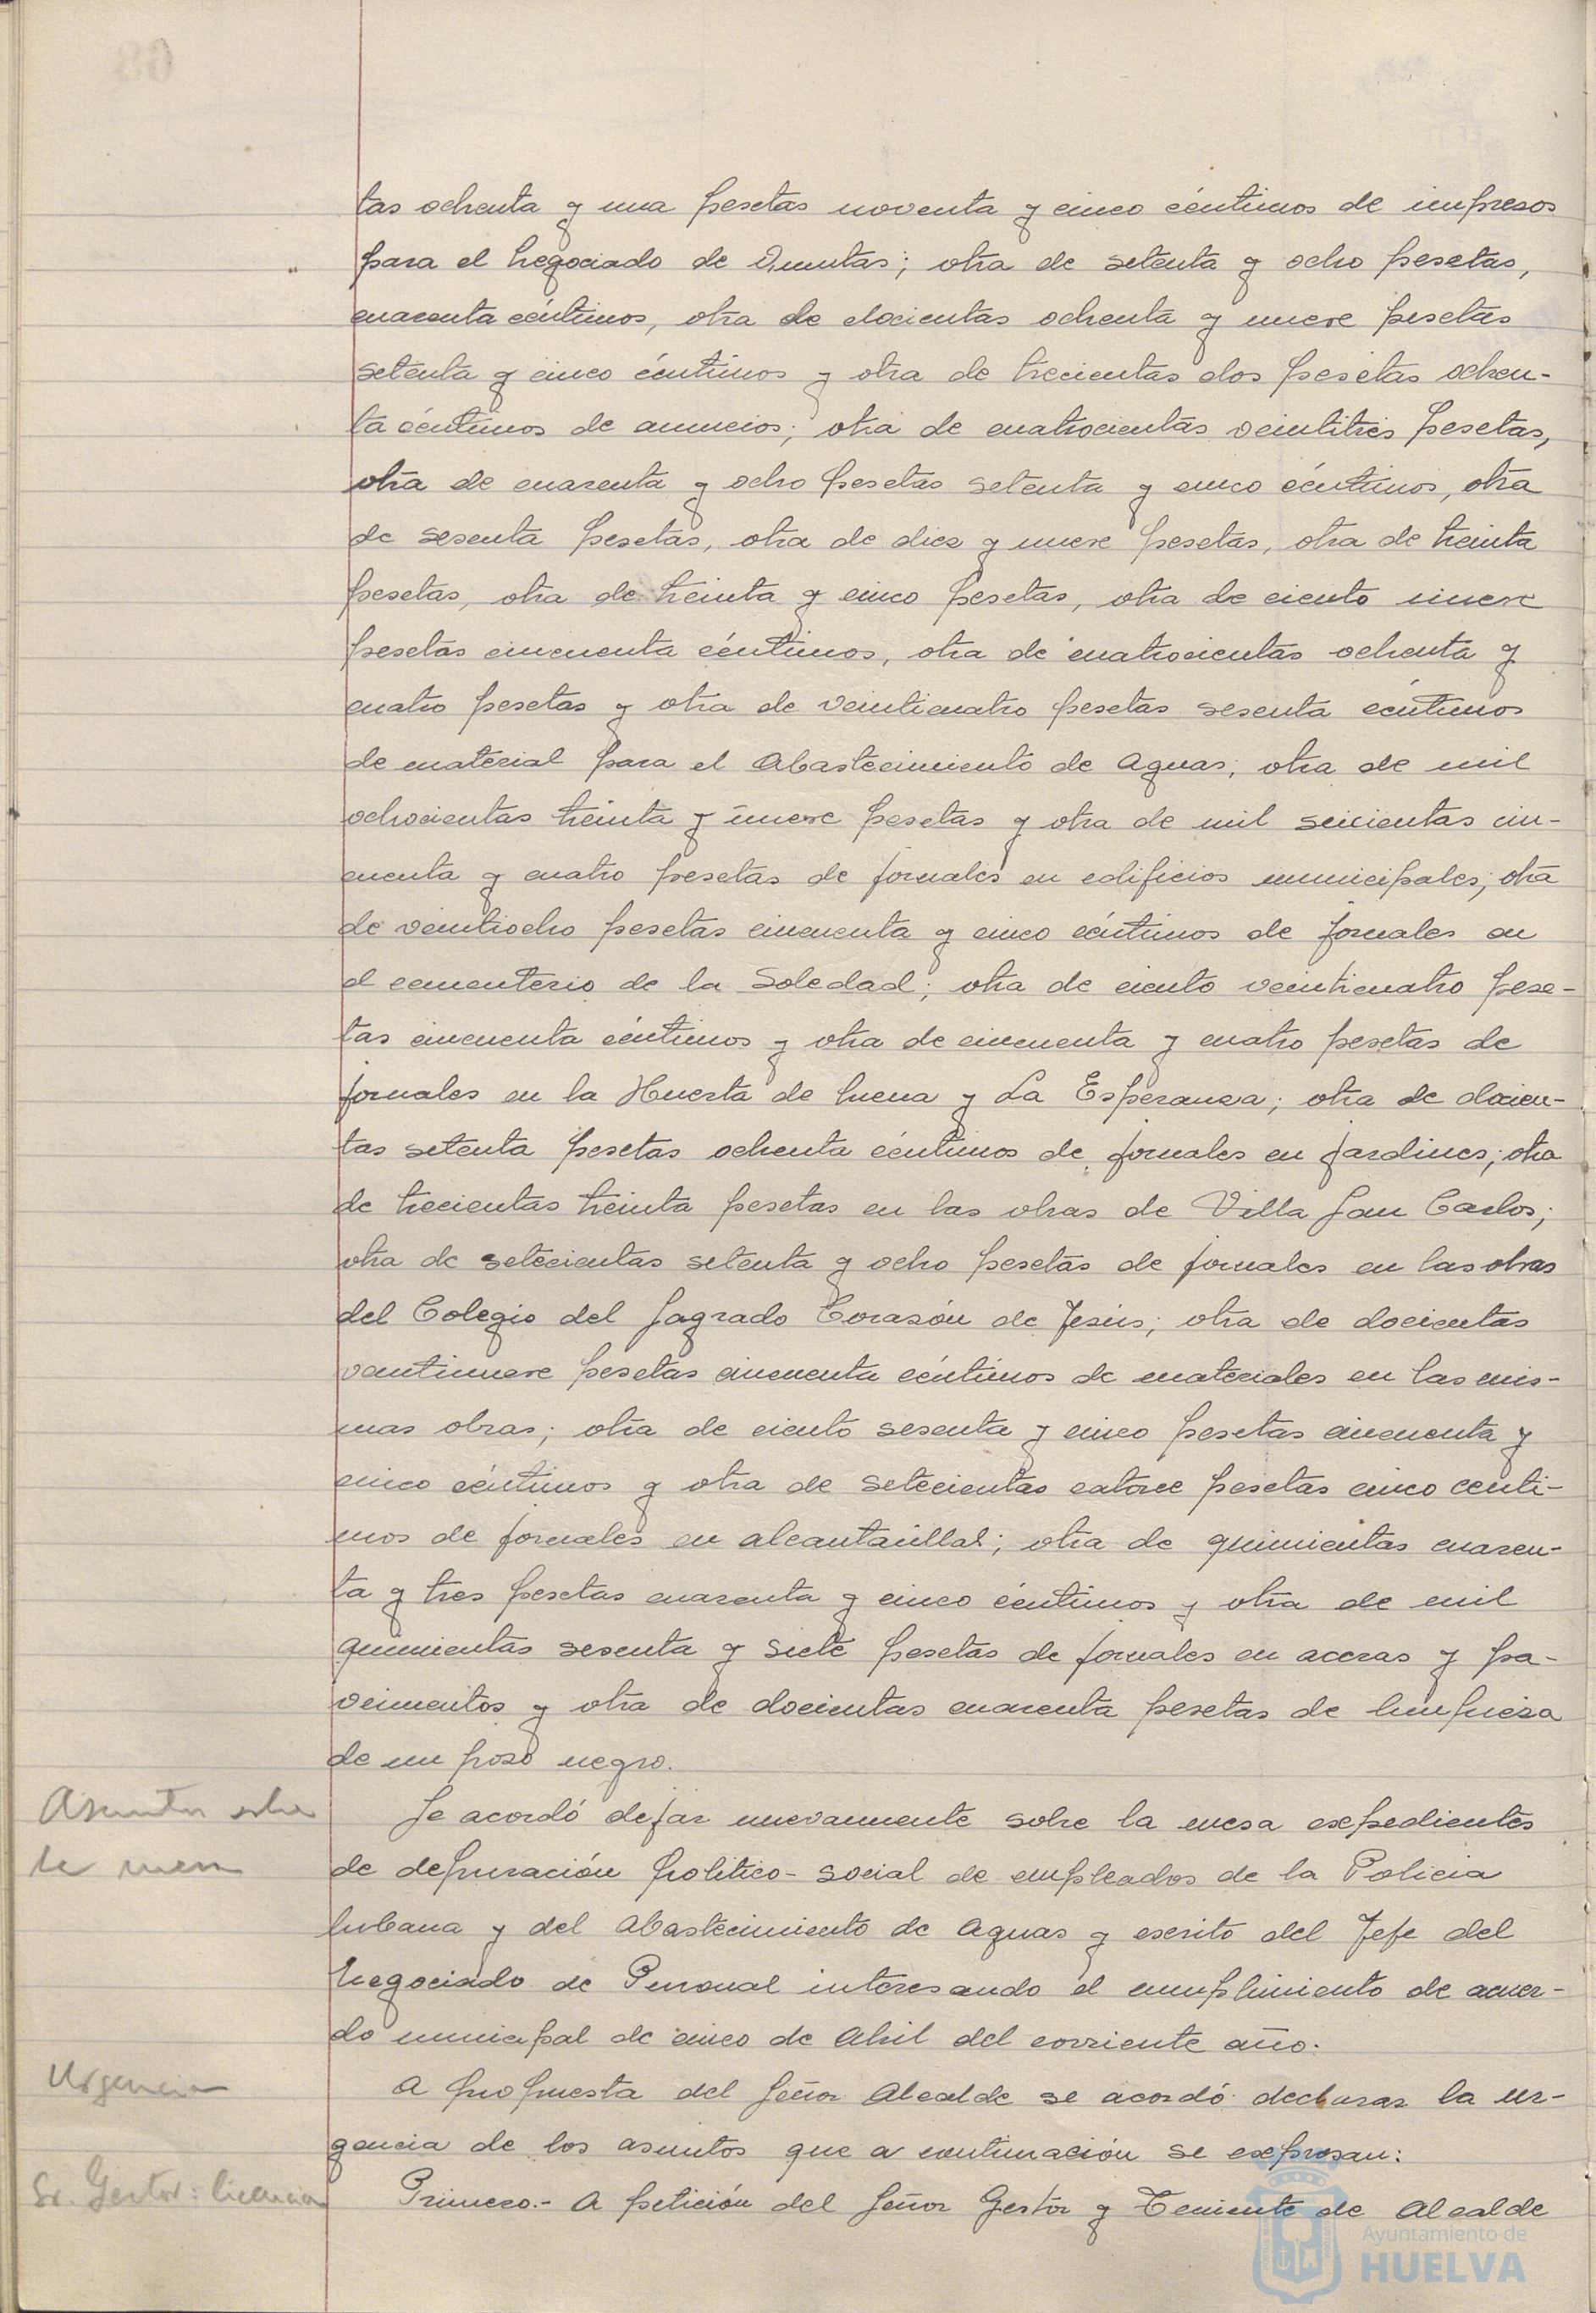 tas ochenta y una pesetas noventa y cinco céntimos de impresos
para el Negociado de Quintas; otra de setenta y ocho pesetas,
cuarenta céntimos, otra de docientas ochenta y nueve pesetas
setenta y cinco céntimos y otra de trecientas dos pesetas ochen-
ta céntimos de anuncios; otra de cuatrocientas veintitrés pesetas,
otra de cuarenta y ocho pesetas setenta y cinco céntimos, otra
de sesenta pesetas, otra de diez y nueve pesetas, otra de treinta
pesetas, otra de treinta y cinco pesetas, otra de ciento nueve
pesetas cincuenta céntimos, otra de cuatrocientas ochenta y
cuatro pesetas y otra de veinticuatro pesetas sesenta céntimos
de material para el Abastecimiento de Aguas; otra de mil
ochocientas treinta y nueve pesetas y otra de mil seicientas cin-
cuenta y cuatro pesetas de jornales en edificios municipales; otra
de veintiocho pesetas cincuenta y cinco céntimos de jornales en
el cementerio de la Soledad; otra de ciento veinticuatro pese-
tas cincuenta céntimos y otra de cincuenta y cuatro pesetas de
jornales en la Huerta de Mena y La Esperanza; otra de docien-
tas setenta pesetas ochenta céntimos de jornales en jardines; otra
de trecientas treinta pesetas en las obras de Villa San Carlos;
otra de setecientas setenta y ocho pesetas de jornales en las obras
del Colegio del Sagrado Corazón de Jesús; otra de docientas
veintinueve pesetas cincuenta céntimos de materiales en las mis-
mas obras; otra de ciento sesenta y cinco pesetas cincuenta y
cinco céntimos y otra de setecientas catorce pesetas cinco centi-
mos de jornales en alcantarillal; otra de quinientas cuaren-
ta y tres pesetas cuarenta y cinco céntimos y otra de mil
quinientas sesenta y siete pesetas de jornales en aceras y pa-
vimentos y otra de docientas cuarenta pesetas de limpieza
de un pozo negro.
Asuntos sobre
la mesa
Se acordó dejar nuevamente sobre la mesa expedientes
de depuración político-social de empleados de la Policía
Urbana y del Abastecimiento de Aguas y escrito del Jefe del
Negociado de Personal interesando el cumplimiento de acuer-
do municipal de cinco de Abril del corriente año.
Urgencia
A propuesta del Señor Alcalde se acordó declarar la ur-
gencia de los asuntos que a continuación se expresan:
Sr. Gestor: licencia
Primero.- A petición del Señor Gestor y Teniente de Alcalde
Ayuntamiento de
HUELVA